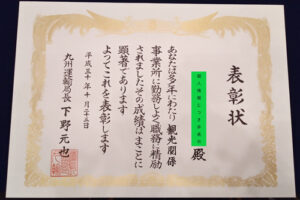 表彰状
個人情報につき非表示
殿
あなたは多年にわたり観光関係
事業所に勤務しよく職務に精励
されましたその成績はまことに
顕著であります
よってこれを表彰します
平成三十年十月二十五日
九州運輸局長 下野元也